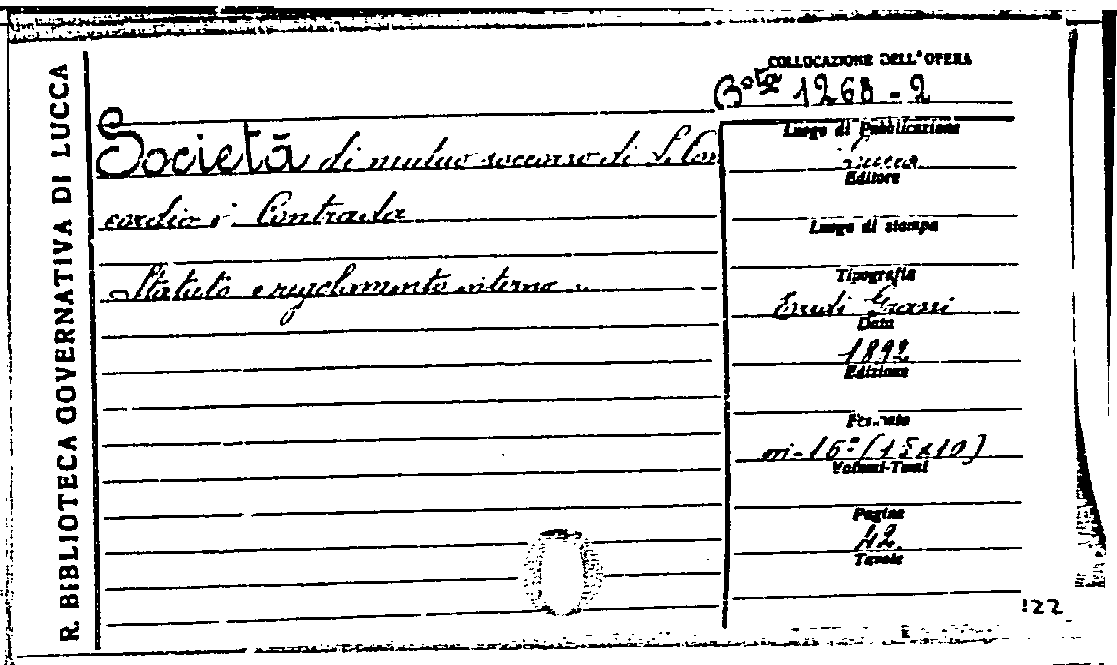 R. BIBLIOTECA GOVERNATIVA DI LUCCA
COLLOCAZIONE DELL'OPERA
Bᵒˢᵗᵃ 1268-2
Società di mutuo soccorso di S. Con
cordio di Contrada
Statuto e regolamento interno.
Luogo di Pubblicazione
Lucca
Editore
Luogo di stampa
Tipografia
Eredi Grassi
Data
1892
Edizione
Formato
in-16º (15x10)
Volumi-Tomi
Pagine
42
Tavole
122